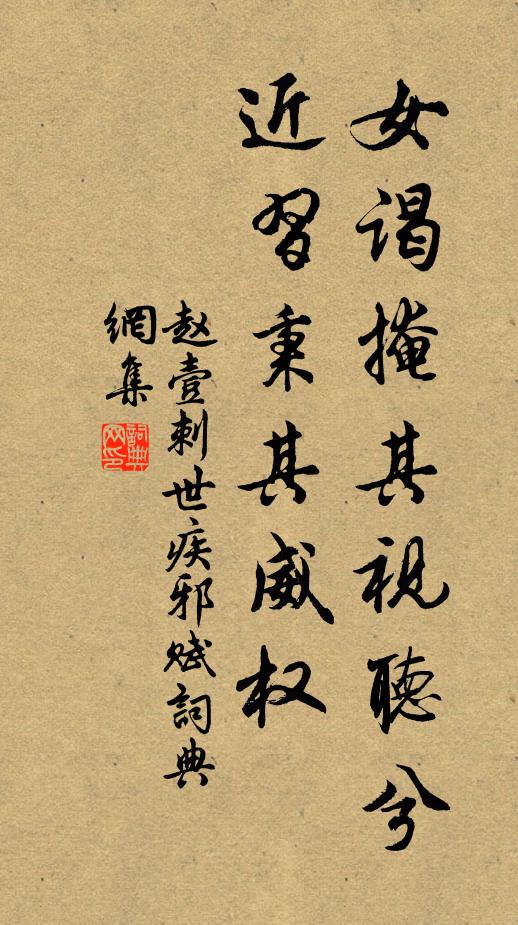 女谒掩其視聴兮
近習秉其威权
赵壹刺世疾邪赋詞典
網集
詞典
网印